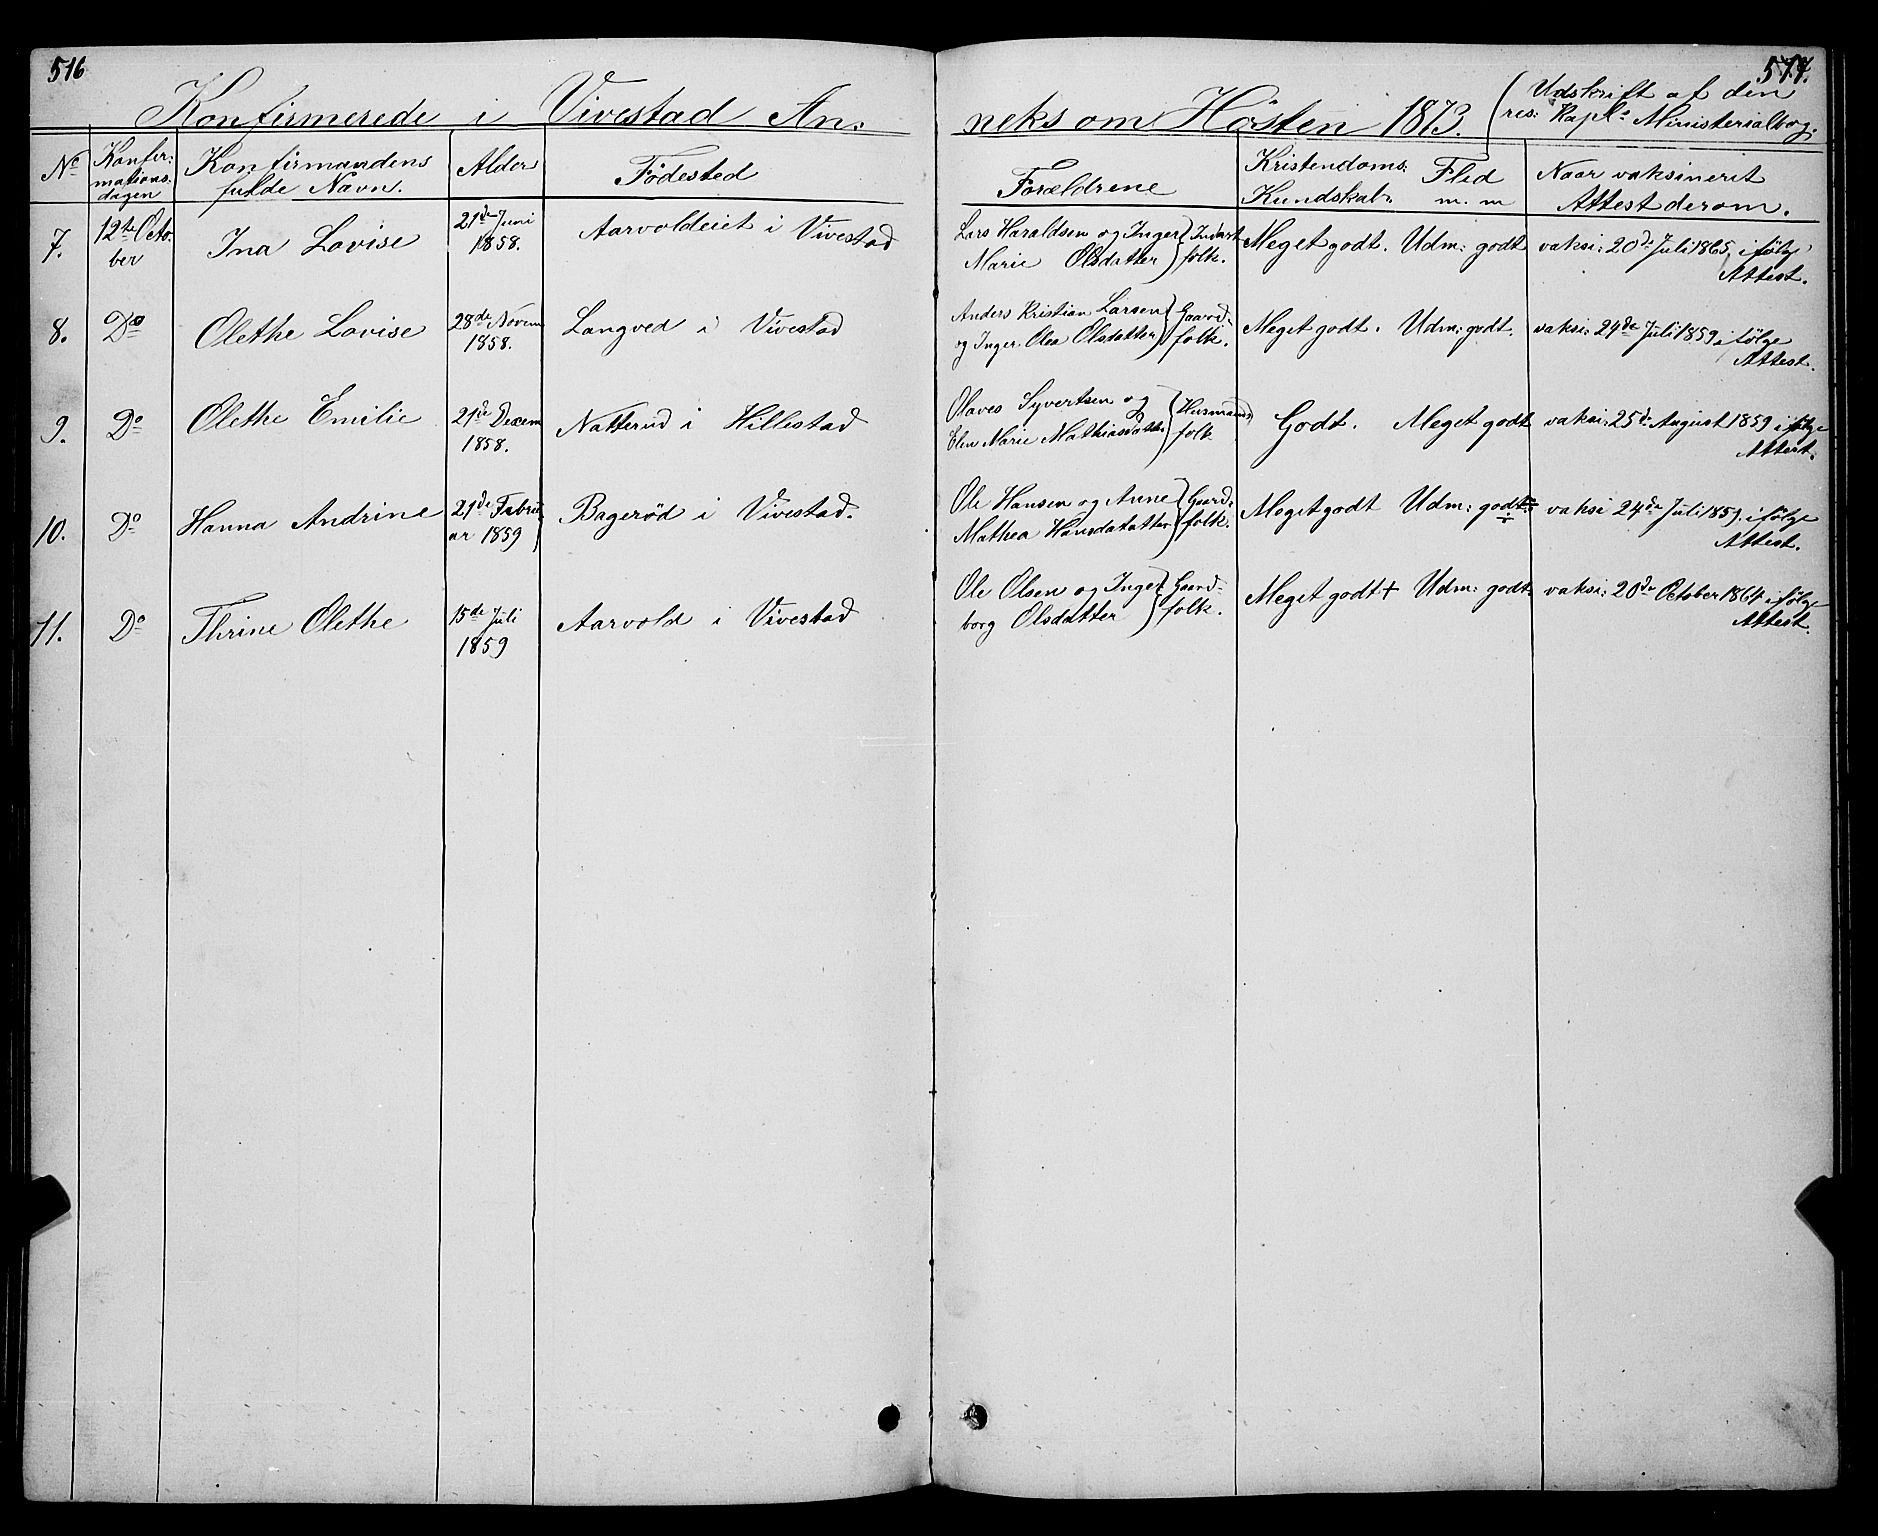 516
517.
Konfirmerede i Vivestad An:
neks om Høsten 1873.
(Udskrift af den
res: Kapls Ministerialbog.
No
Konfir:
mations.
dagen
Konfirmandens
fulde Navn.
Alder
Fødested
Forældrene
Kristendoms.
Kundskab.
Flid
m. m
Naar vaksinerit
Attest derom.
7.
12te Octo.
ber
Ina Lovise
21de Juni
1858.
Aarvoldeiet i Vivestad
Lars Haraldsen og Inger
Marie Olsdatter
folk.
Meget godt.
Udm: godt
vaksi: 20de Juli 1865, i følge
Attest.
8.
Do
Olethe Lovise
28de Novem
1858.
Langved i Vivestad
Anders Kristian Larsen
og Inger Olea Olsdatter
Gaard:
folk.
Meget godt.
Udm: godt.
vaksi: 24de Juli 1859 i følge
Attest.
9.
Do
Olethe Emilie
21de Decem
1858.
Natterud i Hillestad
Olaves Syvertsen og
Elen Marie Mathiasdatter
Husmands
folk
Godt.
Meget godt
vaksi: 25de August 1859 i følge
Attest.
10.
Do
Hanna Andrine
21de Febru
ar 1859
Bagerød i Vivestad.
Ole Hansen og Anne
Mathea Hansdatatter
Gaard:
folk.
Meget godt
Udm: godt ÷
vaksi 24de Juli 1859. i følge
Attest.
11.
Do
Thrine Olethe
15de Juli
1859
Aarvold i Vivestad
Ole Olsen og Inge
borg Olsdatter
Gaard-
folk.
Meget godt +
Udm: godt
vaksi: 20de October 1864 i følge
Attest.